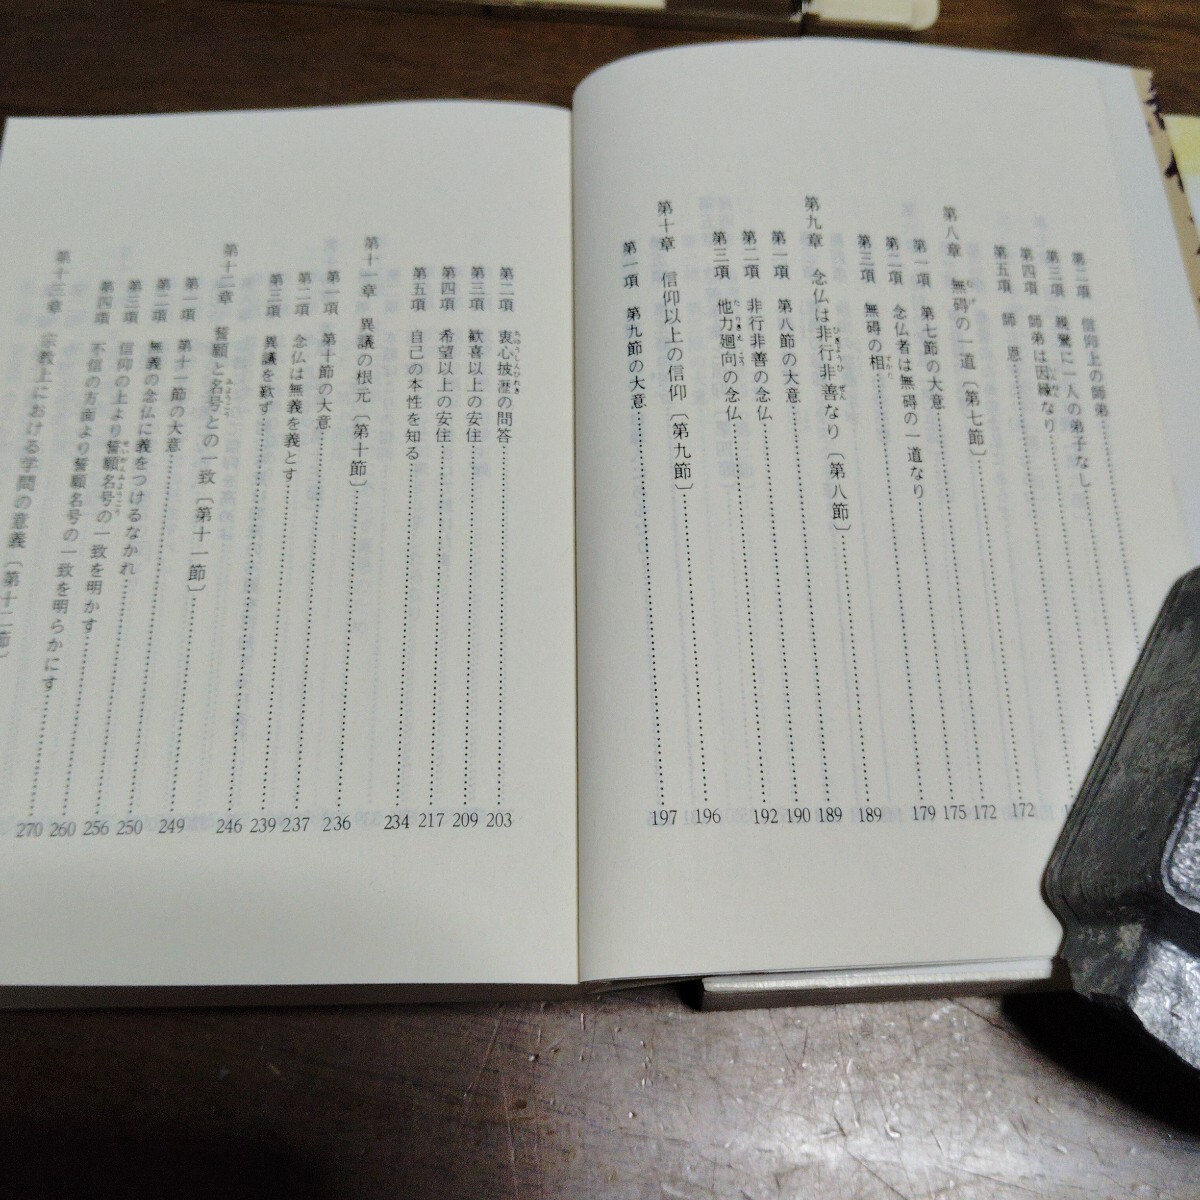 第二項　信仰上の師弟
第三項　親鸞に一人の弟子なし
第四項　師弟は因縁なり
第五項　師　恩
第八章　無碍の一道〔第七節〕 172
第一項　第七節の大意 172
第二項　念仏者は無碍の一道なり 175
第三項　無碍の相 179
第九章　念仏は非行非善なり〔第八節〕 189
第一項　第八節の大意 189
第二項　非行非善の念仏 190
第三項　他力廻向の念仏 192
第十章　信仰以上の信仰〔第九節〕 196
第一項　第九節の大意 197
第二項　衷心披瀝の問答 203
第三項　歓喜以上の安住 209
第四項　希望以上の安住 217
第五項　自己の本性を知る 234
第十一章　異議の根元〔第十節〕 236
第一項　第十節の大意 237
第二項　念仏は無義を義とす 239
第三項　異議を歎ず 246
第十二章　誓願と名号との一致〔第十一節〕 249
第一項　第十一節の大意 250
第二項　無義の念仏に義をつけるなかれ 256
第三項　信仰の上より誓願名号の一致を明かす 260
第四項　不信の方面より誓願名号の一致を明らかにす 270
第十三章　宗教上における学問の意義〔第十二節〕